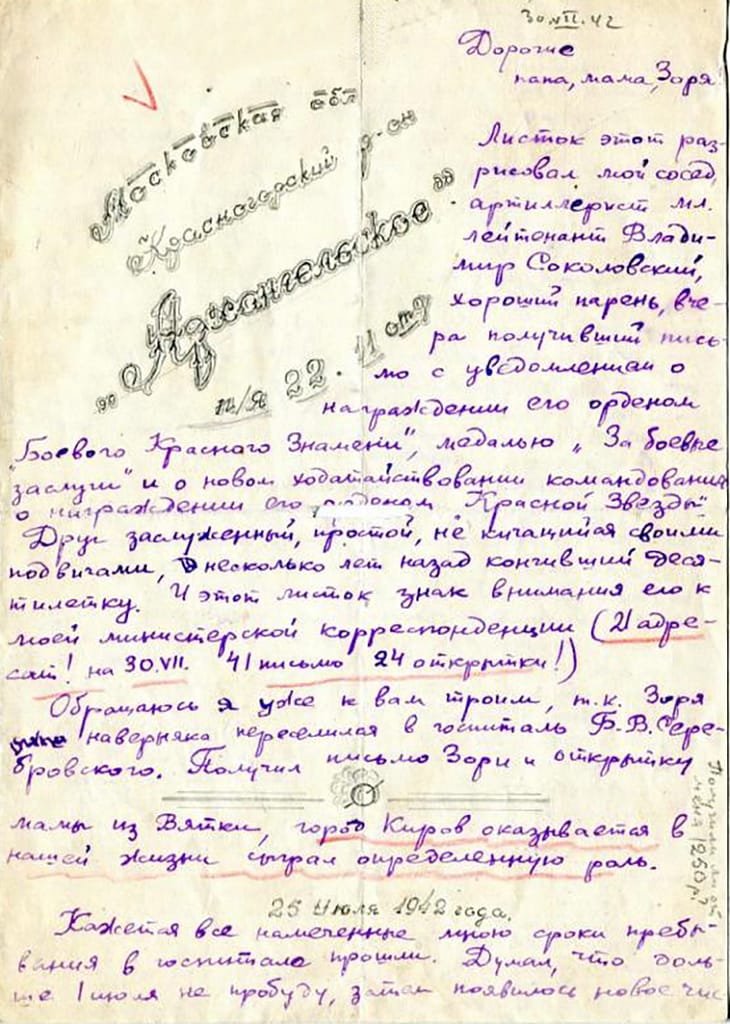 30.VII.42
Дорогие
папа, мама, Зоря!
Московская обл
Красногорский р-он
„Архангельское"
п/я 22·11 отд
Листок этот раз-
рисовал мой сосед,
артиллерист мл.
лейтенант Влади-
мир Соколовский,
хороший парень, вче-
ра получивший пись-
мо с уведомлением о
награждении его орденом
„Боевого Красного Знамени", медалью „За боевые
заслуги" и о новом ходатайствовании командования
о награждении его орденом „Красной Звезды"
Друг заслуженный, простой, не кичащийся своими
подвигами, несколько лет назад кончивший деся-
тилетку. И этот листок знак внимания его к
моей министерской корреспонденции (21 адре-
сат! на 30.VII. 41 письмо 24 открытки!)
Обращаюсь я уже к вам троим, т.к. Зоря
наверняка переселилась в госпиталь Б.В. Сере-
бровского. Получил письмо Зори и открытку
мамы из Вятки, город Киров оказывается в
нашей жизни сыграл определенную роль.
Получили ли от
меня 1250 р.?
25 Июля 1942 года.
Кажется все намеченные мною сроки пребы-
вания в госпитале прошли. Думал, что доль-
ше 1 июля не пробуду, затем появилось новое чис